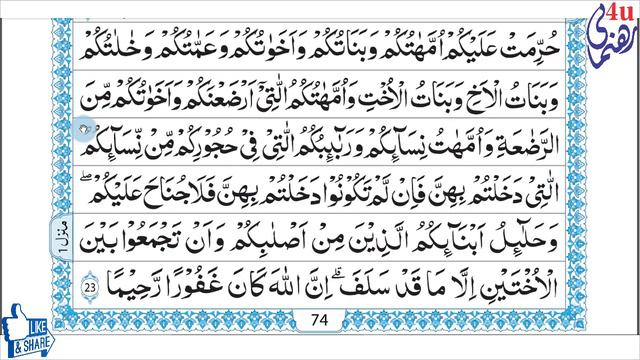 4u
رهنمای
حُرِّمَتْ عَلَيْكُمْ اُمَّهٰتُكُمْ وَبَنَاتُكُمْ وَاَخَوٰتُكُمْ وَعَمّٰتُكُمْ وَخٰلٰتُكُمْ
وَبَنَاتُ الْاَخِ وَبَنَاتُ الْاُخْتِ وَاُمَّهٰتُكُمُ الّٰتِيْۤ اَرْضَعْنَكُمْ وَاَخَوٰتُكُمْ مِّنَ
الرَّضَاعَةِ وَاُمَّهٰتُ نِسَآئِكُمْ وَرَبَآئِبُكُمُ الّٰتِيْ فِيْ حُجُوْرِكُمْ مِّنْ نِّسَآئِكُمُ
الّٰتِيْ دَخَلْتُمْ بِهِنَّ فَاِنْ لَّمْ تَكُوْنُوْا دَخَلْتُمْ بِهِنَّ فَلَا جُنَاحَ عَلَيْكُمْ ۖ
وَحَلَآئِلُ اَبْنَآئِكُمُ الَّذِيْنَ مِنْ اَصْلَابِكُمْ وَاَنْ تَجْمَعُوْا بَيْنَ
الْاُخْتَيْنِ اِلَّا مَا قَدْ سَلَفَ ۗ اِنَّ اللّٰهَ كَانَ غَفُوْرًا رَّحِيْمًا 23
منزل 1
74
LIKE
& SHARE